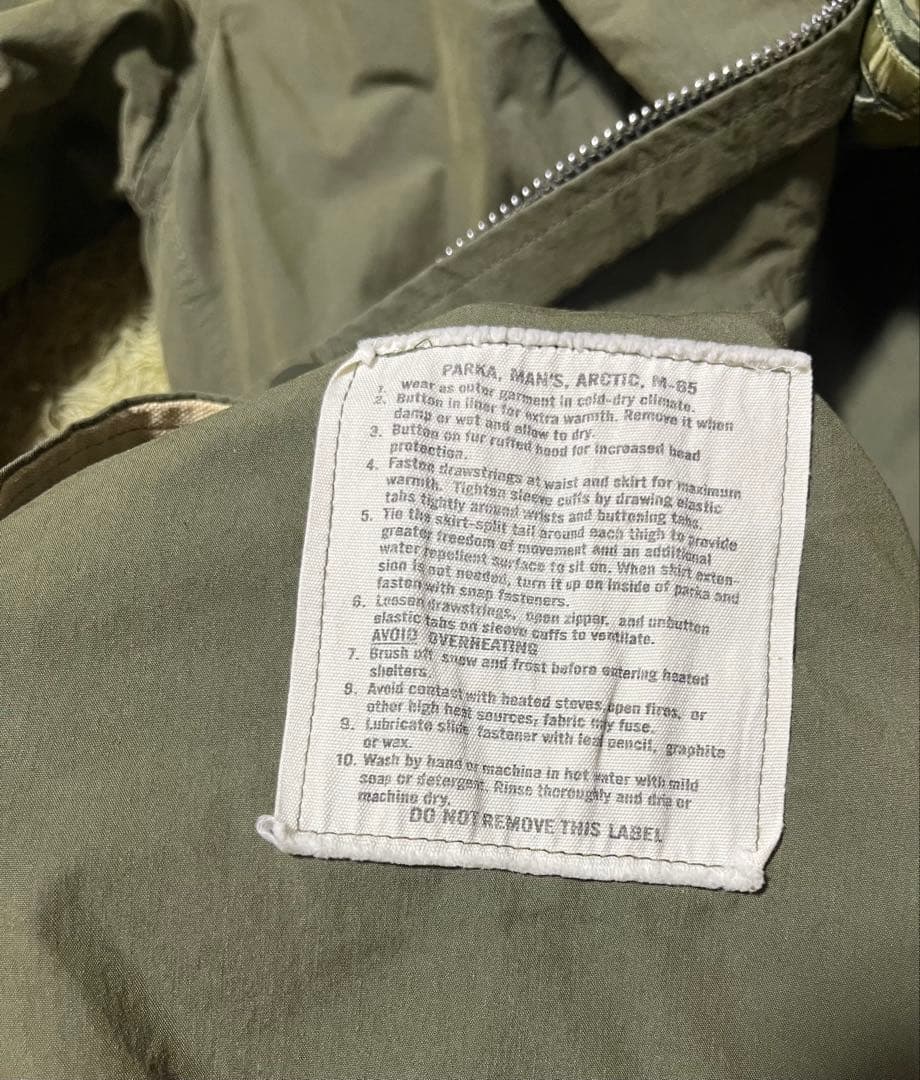 PARKA, MAN'S, ARCTIC, M-65
1. Wear as outer garment in cold-dry climate.
2. Button in liner for extra warmth. Remove it when
damp or wet and allow to dry.
3. Button on fur ruffed hood for increased head
protection.
4. Fasten drawstrings at waist and skirt for maximum
warmth. Tighten sleeve cuffs by drawing elastic
tabs tightly around wrists and buttoning tabs.
5. Tie the skirt-split tail around each thigh to provide
greater freedom of movement and an additional
water repellent surface to sit on. When skirt exten-
sion is not needed, turn it up on inside of parka and
fasten with snap fasteners.
6. Loosen drawstrings, open zipper, and unbutton
elastic tabs on sleeve cuffs to ventilate.
AVOID OVERHEATING
7. Brush off snow and frost before entering heated
shelters.
9. Avoid contact with heated stoves, open fires, or
other high heat sources; fabric may fuse.
9. Lubricate slide fastener with lead pencil, graphite
or wax.
10. Wash by hand or machine in hot water with mild
soap or detergent. Rinse thoroughly and drip or
machine dry.
DO NOT REMOVE THIS LABEL